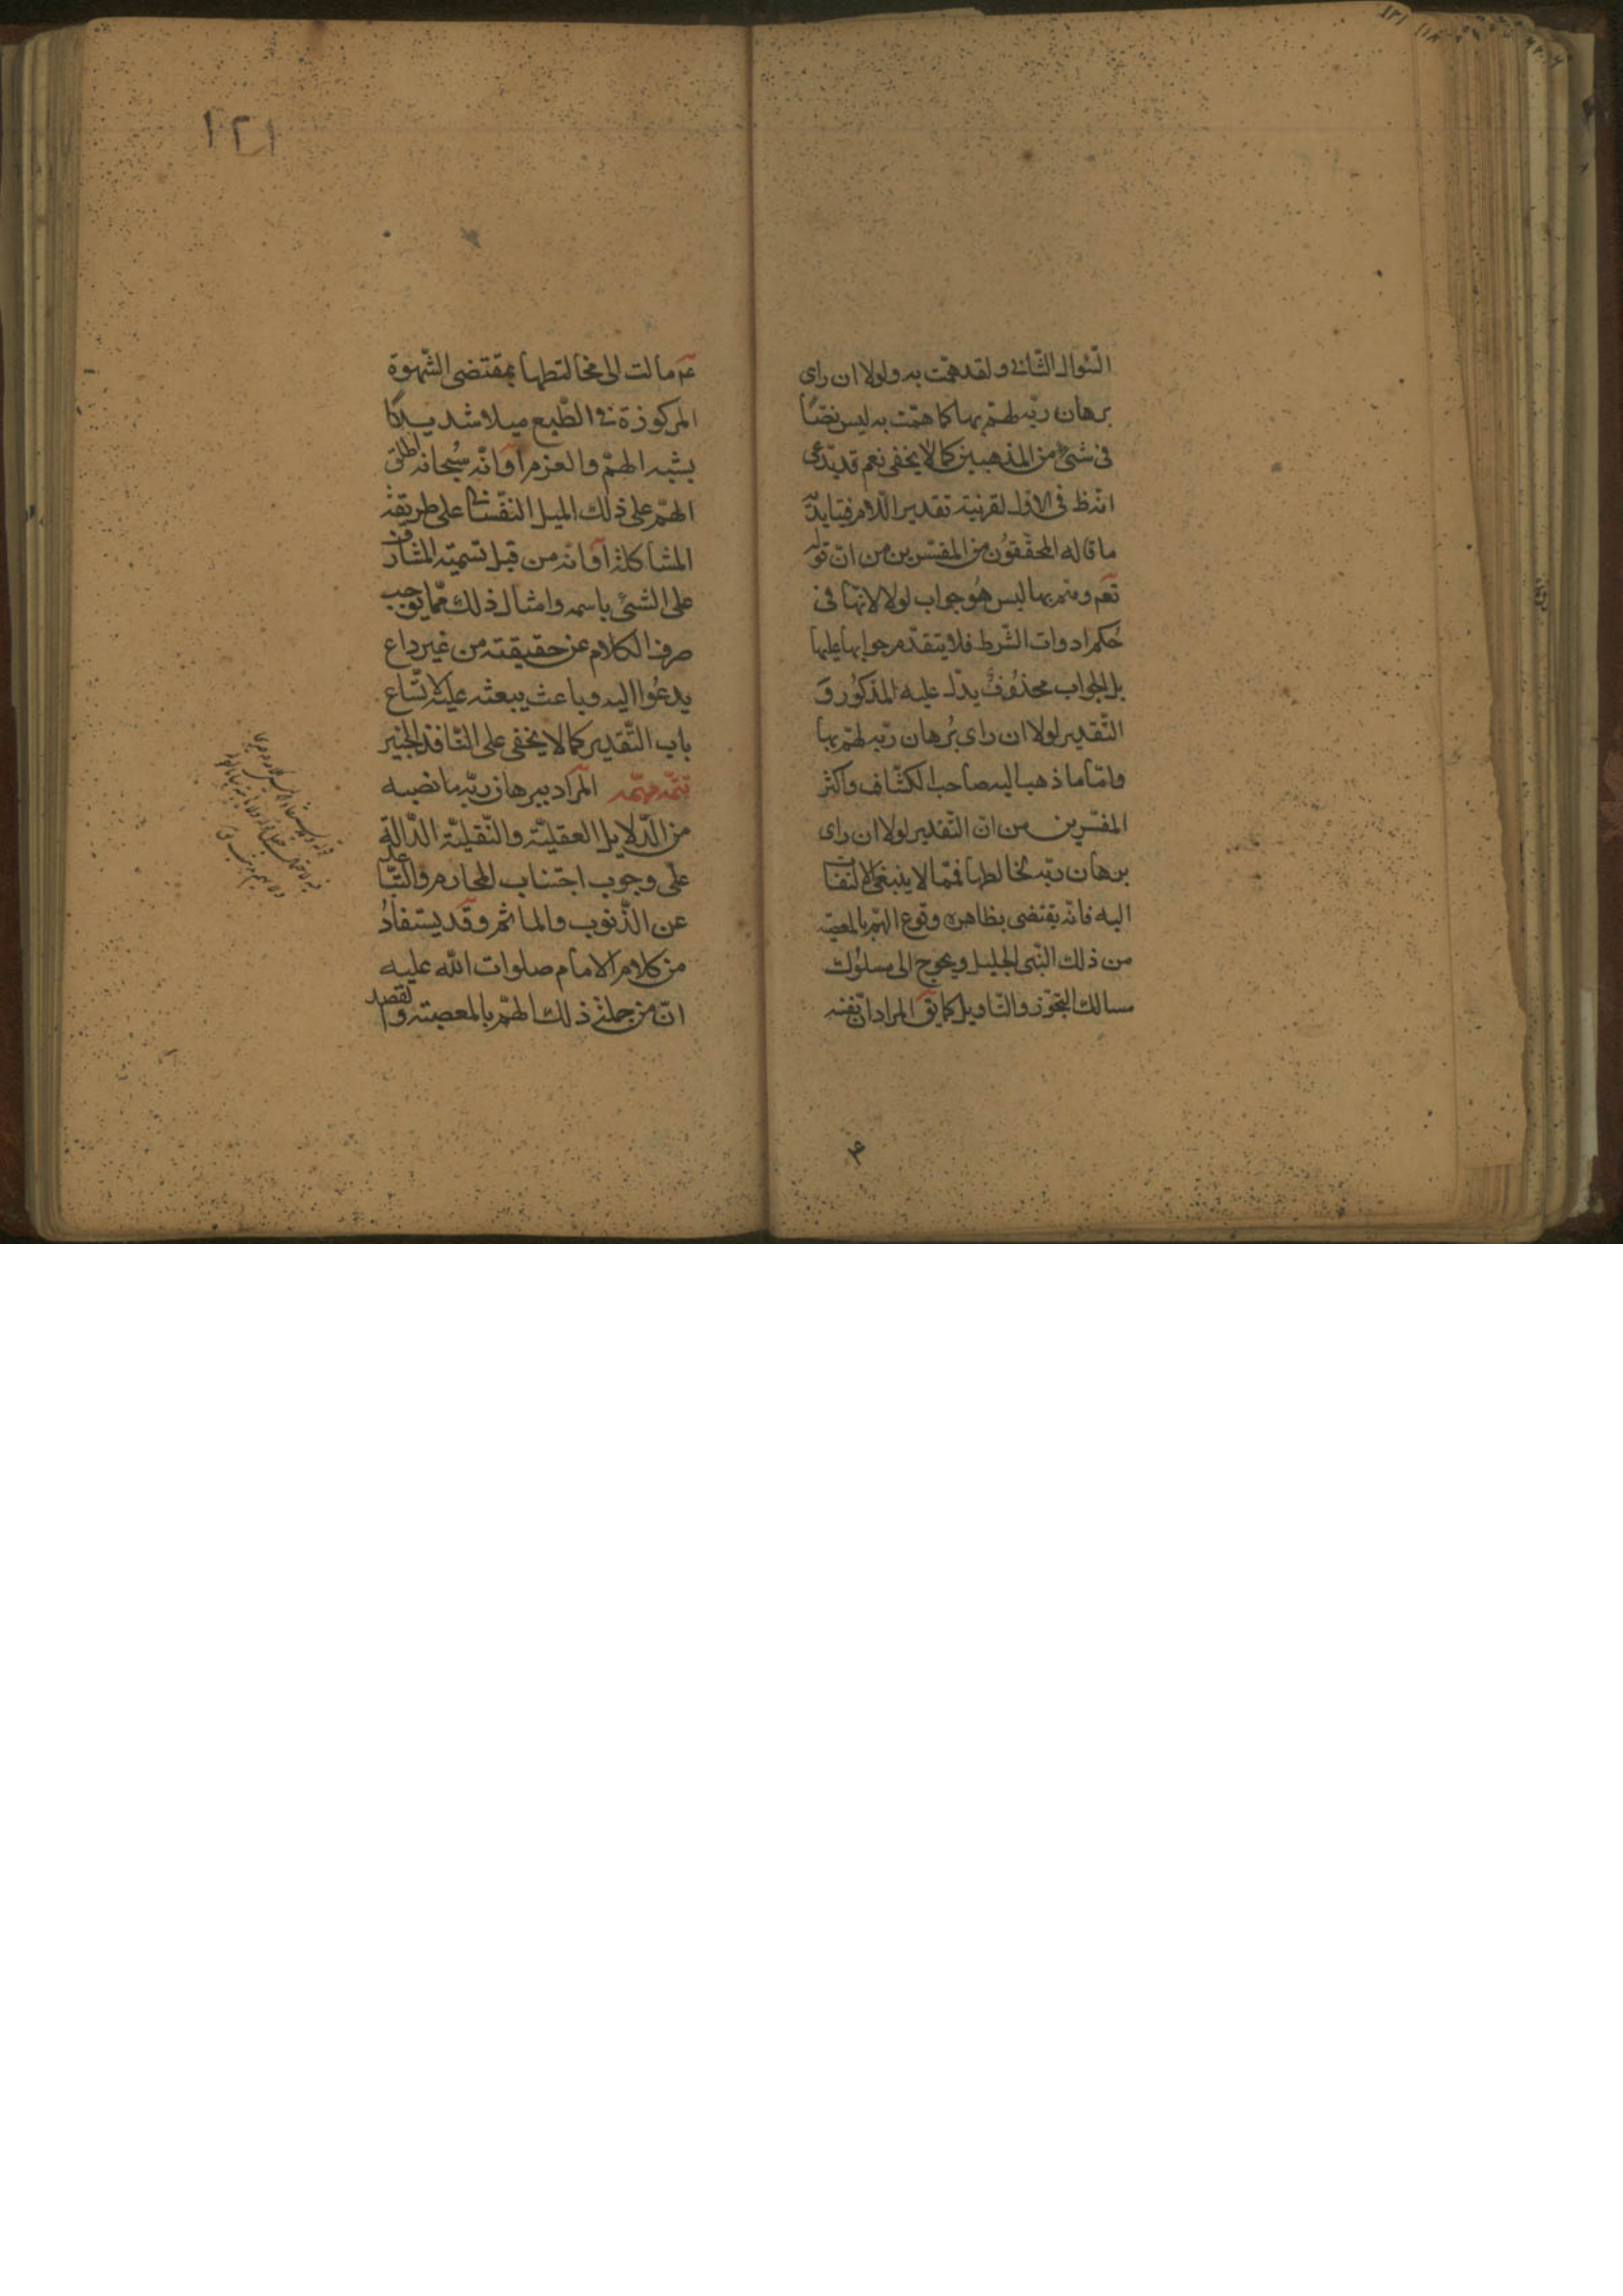 السّئوال الثّانى ولقد همّت به ولولا ان راى
برهان ربّه لهمّ بها كما همّت به ليس نصّا
فى شئ من المذهبين كما لا يخفى نعم قد يدّعى
انّه ظ فى الاوّل لقرنية تقدير اللّام فيتايد
ما قاله المحقّقون من المفسّرين من انّ قوله
تعم وهم بها ليس هُو جواب لولا لانّها فى
حُكم ادوات الشّرط فلا يتقدّم جوابها عليها
بل الجواب محذوُفٌ يدلّ عليه المذكوُر وَ
التّقدير لولا ان راى بُرهان ربّه لهّم بها
وامّا ما ذهب اليه صاحب الكشّاف واكثر
المفسّرين من انّ التّقدير لولا ان راى
برهان ربّه لخالطها فممّا لا ينبغى الالتفات
اليه فانّه يقتضى بظاهره وقوع الهمّ بالمعصيّه
من ذلك النّبى الجليل ويحوج الى سلوُك
مسالك التّجوّز والتّاويل كما يقَ المراد انّ نفسه
عم مالت الى مخالطتها بمقتضى الشّهوة
المركوزة فى الطّبع ميلا شديدًا
يشبه الهمّ والعزم اَوانّه سُبحانه اطلق
الهمّ على ذلك الميل النفّسانى على طريقة
المشاكلة اَوانّه من قبل تسميّة المشارف
على الشئ باسمه وامثال ذلك ممّا يوجب
صرف الكلام عن حقيقته من غير داع
يدعُوا اليه وباعث يبعثه عليه لاتّساع
باب التّقدير كما لا يخفى على النّاقد الخبير
تتمّه مهمّه المراد ببرهان ربّه ما نصبه
من الدّلايل العقليّة والنّقليّة الدّالّة
على وجوب اجتناب المحارم والتّباعد
عن الذّنوب والماثم وقَد يستفادُ
من كلام الامام صلوات الله عليه
انّ من جملة ذلك الهمّ بالمعصيّة والقصد
١٢١